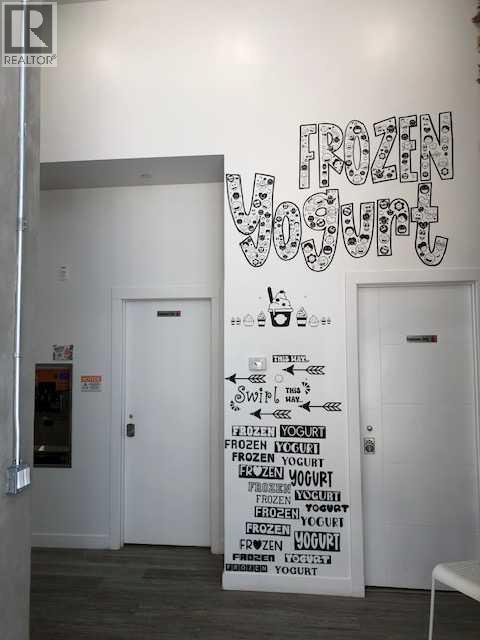 REALTOR®
FROZEN
Yogurt
THIS WAY...
Swirl THIS
WAY...
NOTICE
FROZEN YOGURT
FROZEN YOGURT
FROZEN YOGURT
FROZEN YOGURT
FROZEN YOGURT
FROZEN YOGURT
FROZEN YOGURT
FROZEN YOGURT
FROZEN YOGURT
FROZEN YOGURT
FROZEN YOGURT